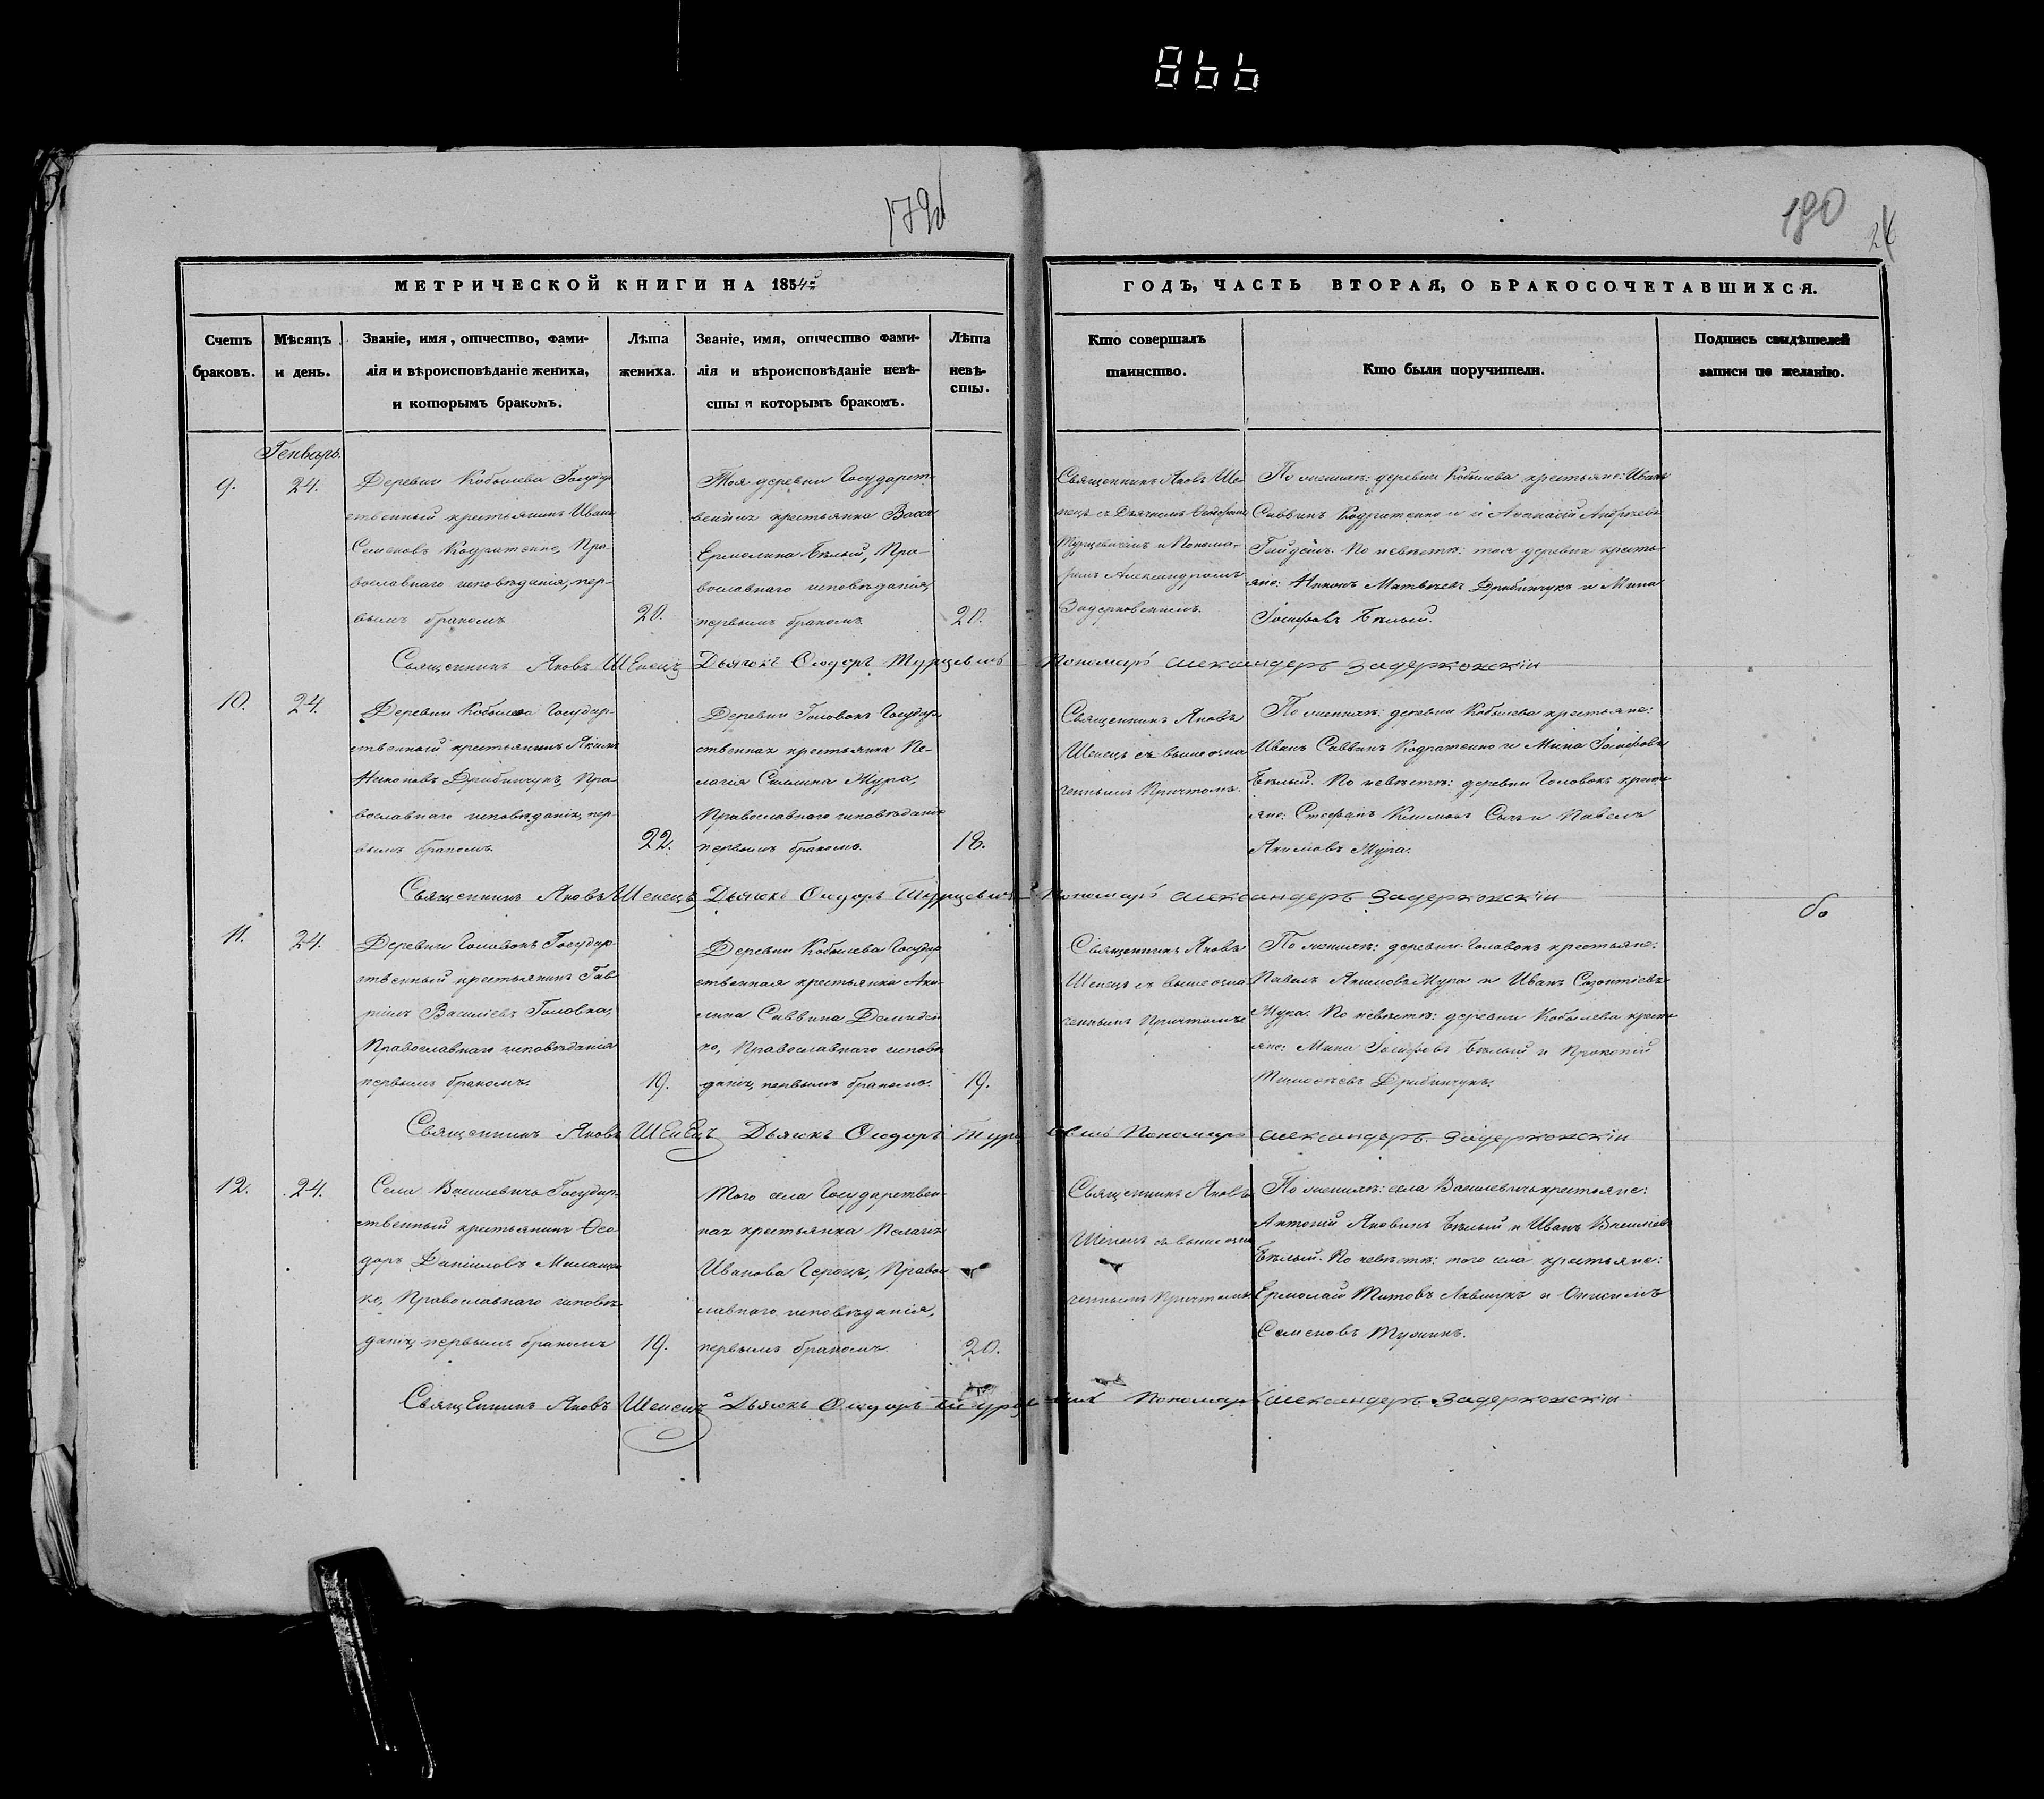 866
179
180
24
МЕТРИЧЕСКОЙ КНИГИ НА 1854й
ГОДЪ, ЧАСТЬ ВТОРАЯ, О БРАКОСОЧЕТАВШИХСЯ.
Счетъ браковъ.
Мѣсяцъ и день.
Званіе, имя, отчество, фами-
лія и вѣроисповѣданіе жениха,
и которымъ бракомъ.
Лѣта
жениха.
Званіе, имя, отчество фами-
лія и вѣроисповѣданіе невѣ-
сты и которымъ бракомъ.
Лѣта
невѣ-
сты.
Кто совершалъ
таинство.
Кто были поручители.
Подпись свидѣтелей
записи по желанію.
Генварь.
9.
24.
Деревни Кобылева Государ
ственный крестьянинъ Иванъ
Семеновъ Кодратенко, Пра
вославнаго исповѣданія, пер-
вымъ бракомъ
20.
Тоя деревни Государст-
венная крестьянка Васса
Ермолина Бѣлый, Пра-
вославнаго исповѣданія,
первымъ бракомъ.
20.
Священникъ Яковъ Ше-
пецъ съ Дьячкомъ Ѳеодоромъ
и Понома-
ремъ Александромъ
Задерковскимъ.
По женихѣ: деревни Кобылева крестьяне: Иванъ
Саввинъ Кодратенко и Аѳанасій Андреевъ
По невѣстѣ: тоя деревни кресть-
яне: Никонъ Матвѣевъ Дрибинчукъ и Мина
Іосифовъ Бѣлый.
Священникъ Яковъ Шепецъ Дьячокъ Ѳеодоръ Турцевичъ Пономарь Александеръ Задерковскій
10.
24.
Деревни Кобылева Государ-
ственный крестьянинъ Якимъ
Никоновъ Дрибинчукъ, Пра
вославнаго исповѣданія, пер-
вымъ бракомъ.
22.
Деревни Головокъ Государ
ственная крестьянка Пе-
лагія Мура,
Православнаго исповѣданія
первымъ бракомъ.
18.
Священникъ Яковъ
Шепецъ съ выше озна
ченнымъ Причтомъ.
По женихѣ: деревни Кобылева крестьяне:
Иванъ Саввинъ Кодратенко и Мина Іосифовъ
Бѣлый. По невѣстѣ: деревни Головокъ кресть
яне: Стефанъ Климовъ и Павелъ
Акимовъ Мура.
Священникъ Яковъ Шепецъ Дьячокъ Ѳеодоръ Турцевичъ Пономарь Александеръ Задерковскій
11.
24.
Деревни Головокъ Государ-
ственный крестьянинъ Гав
ріилъ Василіевъ Головка,
Православнаго исповѣданія
первымъ бракомъ.
19.
Деревни Кобылева Государ
ственная крестьянка Аку-
лина Саввина Демиден
ко, Православнаго исповѣ
данія, первымъ бракомъ.
19.
Священникъ Яковъ
Шепецъ съ выше озна
ченнымъ Причтомъ
По женихѣ: деревни Головокъ крестьяне:
Павелъ Акимовъ Мура и Иванъ Созонтіевъ
Мура. По невѣстѣ: деревни Кобылева кресть
яне: Мина Іосифовъ Бѣлый и Прокопій
Тимоѳеевъ Дрибинчукъ.
Священникъ Яковъ Шепецъ Дьячокъ Ѳеодоръ Турцевичъ Пономарь Александеръ Задерковскій
12.
24.
Села Василевичъ Государ-
ственный крестьянинъ Ѳео-
доръ Даніиловъ
ко, Православнаго исповѣ
данія, первымъ бракомъ
19.
Того села Государствен-
ная крестьянка Пелагія
Иванова Герецъ, Право
славнаго исповѣданія,
первымъ бракомъ.
20.
Священникъ Яковъ
Шепецъ съ выше озна
ченнымъ Причтомъ.
По женихѣ: села Василевичъ крестьяне:
Антоній Яковинъ Бѣлый и Иванъ Василіевъ
Бѣлый. По невѣстѣ: того села крестьяне:
Ермолай Титовъ и Онисимъ
Семеновъ
Священникъ Яковъ Шепецъ Дьячокъ Ѳеодоръ Турцевичъ Пономарь Александеръ Задерковскій